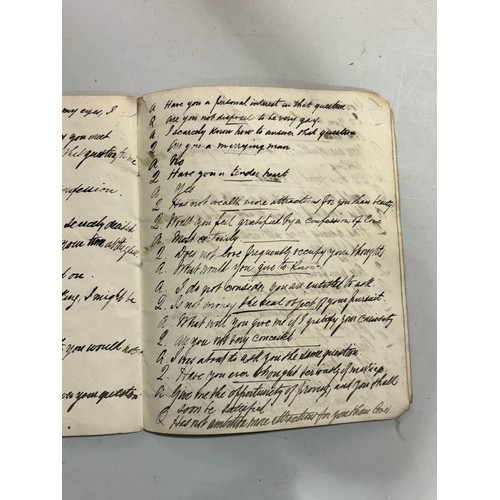 my eyes, I
you meet
that question to me
confession.
d on.
ing, I might be
you would not
your question
A Have you a personal interest in that question
Q Are you not disposed to be very gay.
A I scarcely know how to answer that question
Q Are you a marrying man.
A No
Q Have you a tender heart
A Yes
Q Has not wealth more attractions for you than beauty
Q Would you feel gratified by a confession of love
A Most certainly
Q. Does not love frequently occupy your thoughts
A. What would you give to know.
A. I do not consider you are entitled to ask.
Q. Is not money the real object of your pursuit
A What will you give me if I gratify your curiosity
Q Are you not very conceited
A, I was about to ask you the same question
Q. Have you ever thought seriously of marriage
A Give me the opportunity of proving and you shall
soon be satisfied
Q Has not ambition more attractions for you than love.